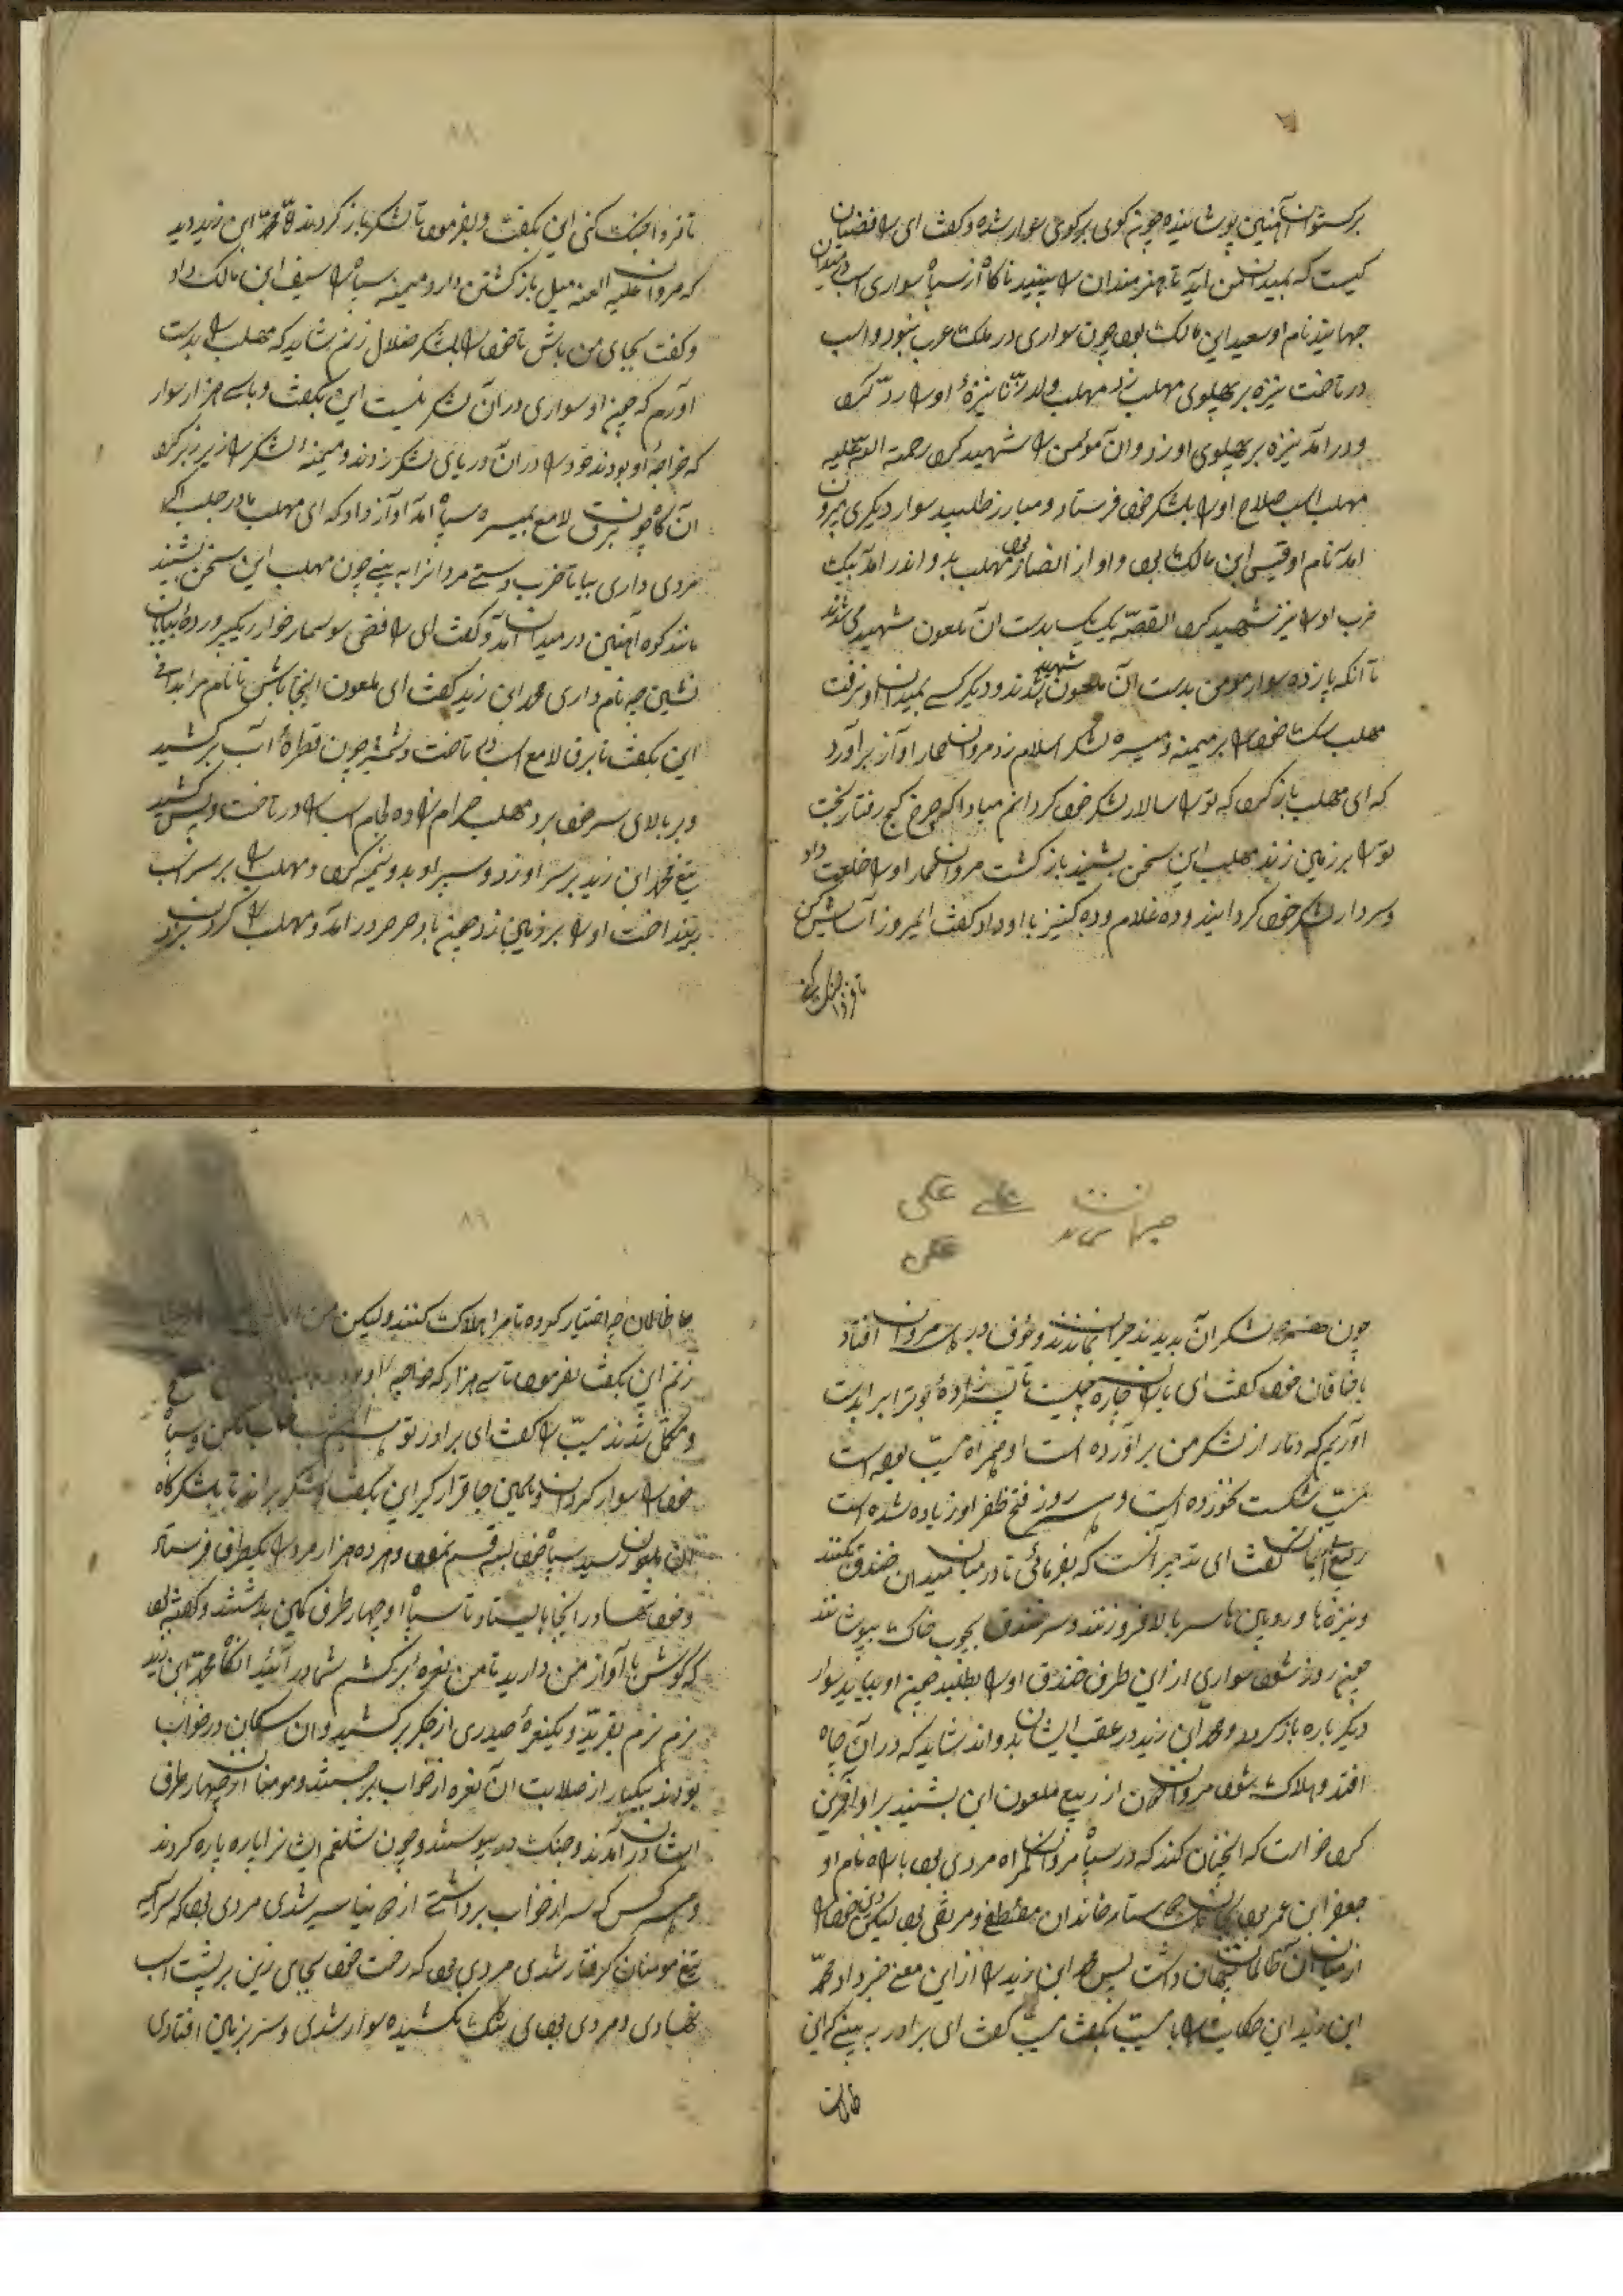 برکستوان آهنین پوشانیده چون کوی برکوی سوار شده و کفت ای رافضیان
کیست که بمیدان من آید تا هنر مندان را ببیند ناکاه از سپاه سواری اسب در میدان
جهانید نام او سعید این مالک بود چون سواری در ملک عرب نبود و اسب
در تاخت نیزه بر پهلوی مهلب زد مهلب ولد الزنا نیزهٔ او را رد کرد
و در آمد نیزه بر پهلوی او زد و آن مؤمن را شهید کرد رحمة الله علیه
مهلب اسب صلاح او را بلشکر خود فرستاد و مبارز طلبید سوار دیکری بیرون
امد نام او قیس این مالک بود و او از انصار بود مهلب بدو اندر امد بیک
ضرب او را نیز شهید کرد القصه یک یک بدست آن ملعون شهید می شدند
تا آنکه پازده سوار مومن بدست آن ملعون شهید شدند و دیکر کسے بمیدان او نرفت
مهلب سک خود را بر میمنه و میسره لشکر اسلام زد مروان حمار اواز برآورد
که ای مهلب باز کرد که تو را سالار لشکر خود کردانم مبادا که چرخ کج رفتار بخت
تو را بر زمین زند مهلب این سخن بشنید باز کشت مروان حمار او را خلعت داد
و سردار لشکر خود کردانید و ده غلام و ده کنیز با او داد کفت امروز آسایش کن
تا فردا جنک کنی
۸۸
تا فردا جنک کنی این بکفت و بفرمود تا لشکر باز کردند محمد ابن زید دید
که مروان علیه العنه میل باز کشتن دارد میمنه سپاه را سیف ابن مالک داد
و کفت بجای من باش تا خود را بلشکر ضلال زنم شاید که مهلب را بدست
آورم که چون او سواری در آن لشکر نیست این بکفت و با سے هزار سوار
که خواجهٔ او بودند خود را در آن دریای لشکر زدند و میمنه لشکر را زیر و زبر کرد
آن کاه چون برق لامع بمیسره سپاه آمد آواز داد که ای مهلب مادر جلب اکر
مردی داری بیا تا ضرب دستے مردانرا به بینے چون مهلب این سخن بشنید
مانند کوه اهنین در میدان آمد و کفت ای رافضی سوسمار خوار ریکپرورده بیابان
نشین چه نام داری محمد ابن زید کفت ای ملعون اینجا باش تا نام مرا بدانے
این بکفت تا برق لامع اسب در تاخت و شمشیر چون قطرهٔ آب برکشید
و بر بالای سر خود برد مهلب حرام زاده لجام اسب را در تاخت و پیش کشید
تیغ محمد ابن زید بر سر او زد و سپر او بدو نیمه کرد و مهلب را بر سر اسب
بینداخت او را بر زمین زد چون باد صرصر در آمد و مهلب را کردن بزد
علی علی
علی
چون لشکر آن بدیدند حیران بماندند و خوف در دل مروان افتاد
با خاقان خود کفت ای یاران چاره چیست تا شیرزادهٔ بو تراب را بدست
آوریم که دمار از لشکر من برآورده است او همراه مسیّب بوده است
مسیّب شکست نخورده است و هر روز فتح ظفر او زیاده شده است
ربیع کفت ای تدبیر آنست که بفرمائی تا در میان میدان خندق بکنند
و نیزه ها و زوپین ها سر بالا فرو زنند و سر خندق بچوب خاک بپوشانند
چون روز شود سواری از این طرف خندق او را بطلبد چون او بیاید سوار
دیکر باره باز کردد و محمد ابن زید در عقب ایشان بدواند شاید که در آن چاه
افتد و هلاک شود مروان از ربیع ملعون این بشنید بر او آفرین
کرد خواست که انچنان کند که در سپاه مروان کمراه مردی بود نام او
جعفر ابن عمر بود دوستار خاندان مصطفے و مرتضی بود لیکن خود را
از میان آن ظالمان پنهان داشت پس محمد ابن زید را از این معنے خبر داد محمد
ابن زید این حکایت را با مسیّب بکفت مسیّب کفت ای برادر به بینے که این
ظالمان
۸۹
ظالمان چه اختیار کرده تا مرا هلاک کنند ولیکن من
زنم این بکفت بفرمود تا سے هزار که خواجه او بودند
و مکمّل شدند مسیّب را کفت ای برادر تو و سپاه
خود را سوار کردان و بهمین جا قرار کیر این بکفت و لشکر براند تا بلشکرکاه
آن ملعون رسید سپاه خود بسه قسم نمود و هر ده هزار مرد را بیکطرف فرستاد
و خود تنها در انجا بایستاد تا سپاه او چهار طرف کمین بداشتند و کفته بود
که کوش با آواز من دارید تا من نعره برکشم شما در آئید آنکاه محمد ابن زید
نرم نرم بغرّید و یکنعرهٔ حیدری از جکر برکشید و آن سکان در خواب
بودند بیکبار از صلابت آن نعره از خواب برجستند و مومنان از چهار طرف
ایشان در آمدند و جنک در پیوستند و چون شلغم ایشانرا پاره پاره کردند
و هر کس که سر از خواب برداشتے از جهان سیر شدی مردی بود که سراسیمه
تیغ مومنان کرفتار شدی مردی بود که رخت خود بجای زین بر پشت اسب
نهادی و مردی بود تنک نکشیده سوار شدی و سر بزمین افتادی